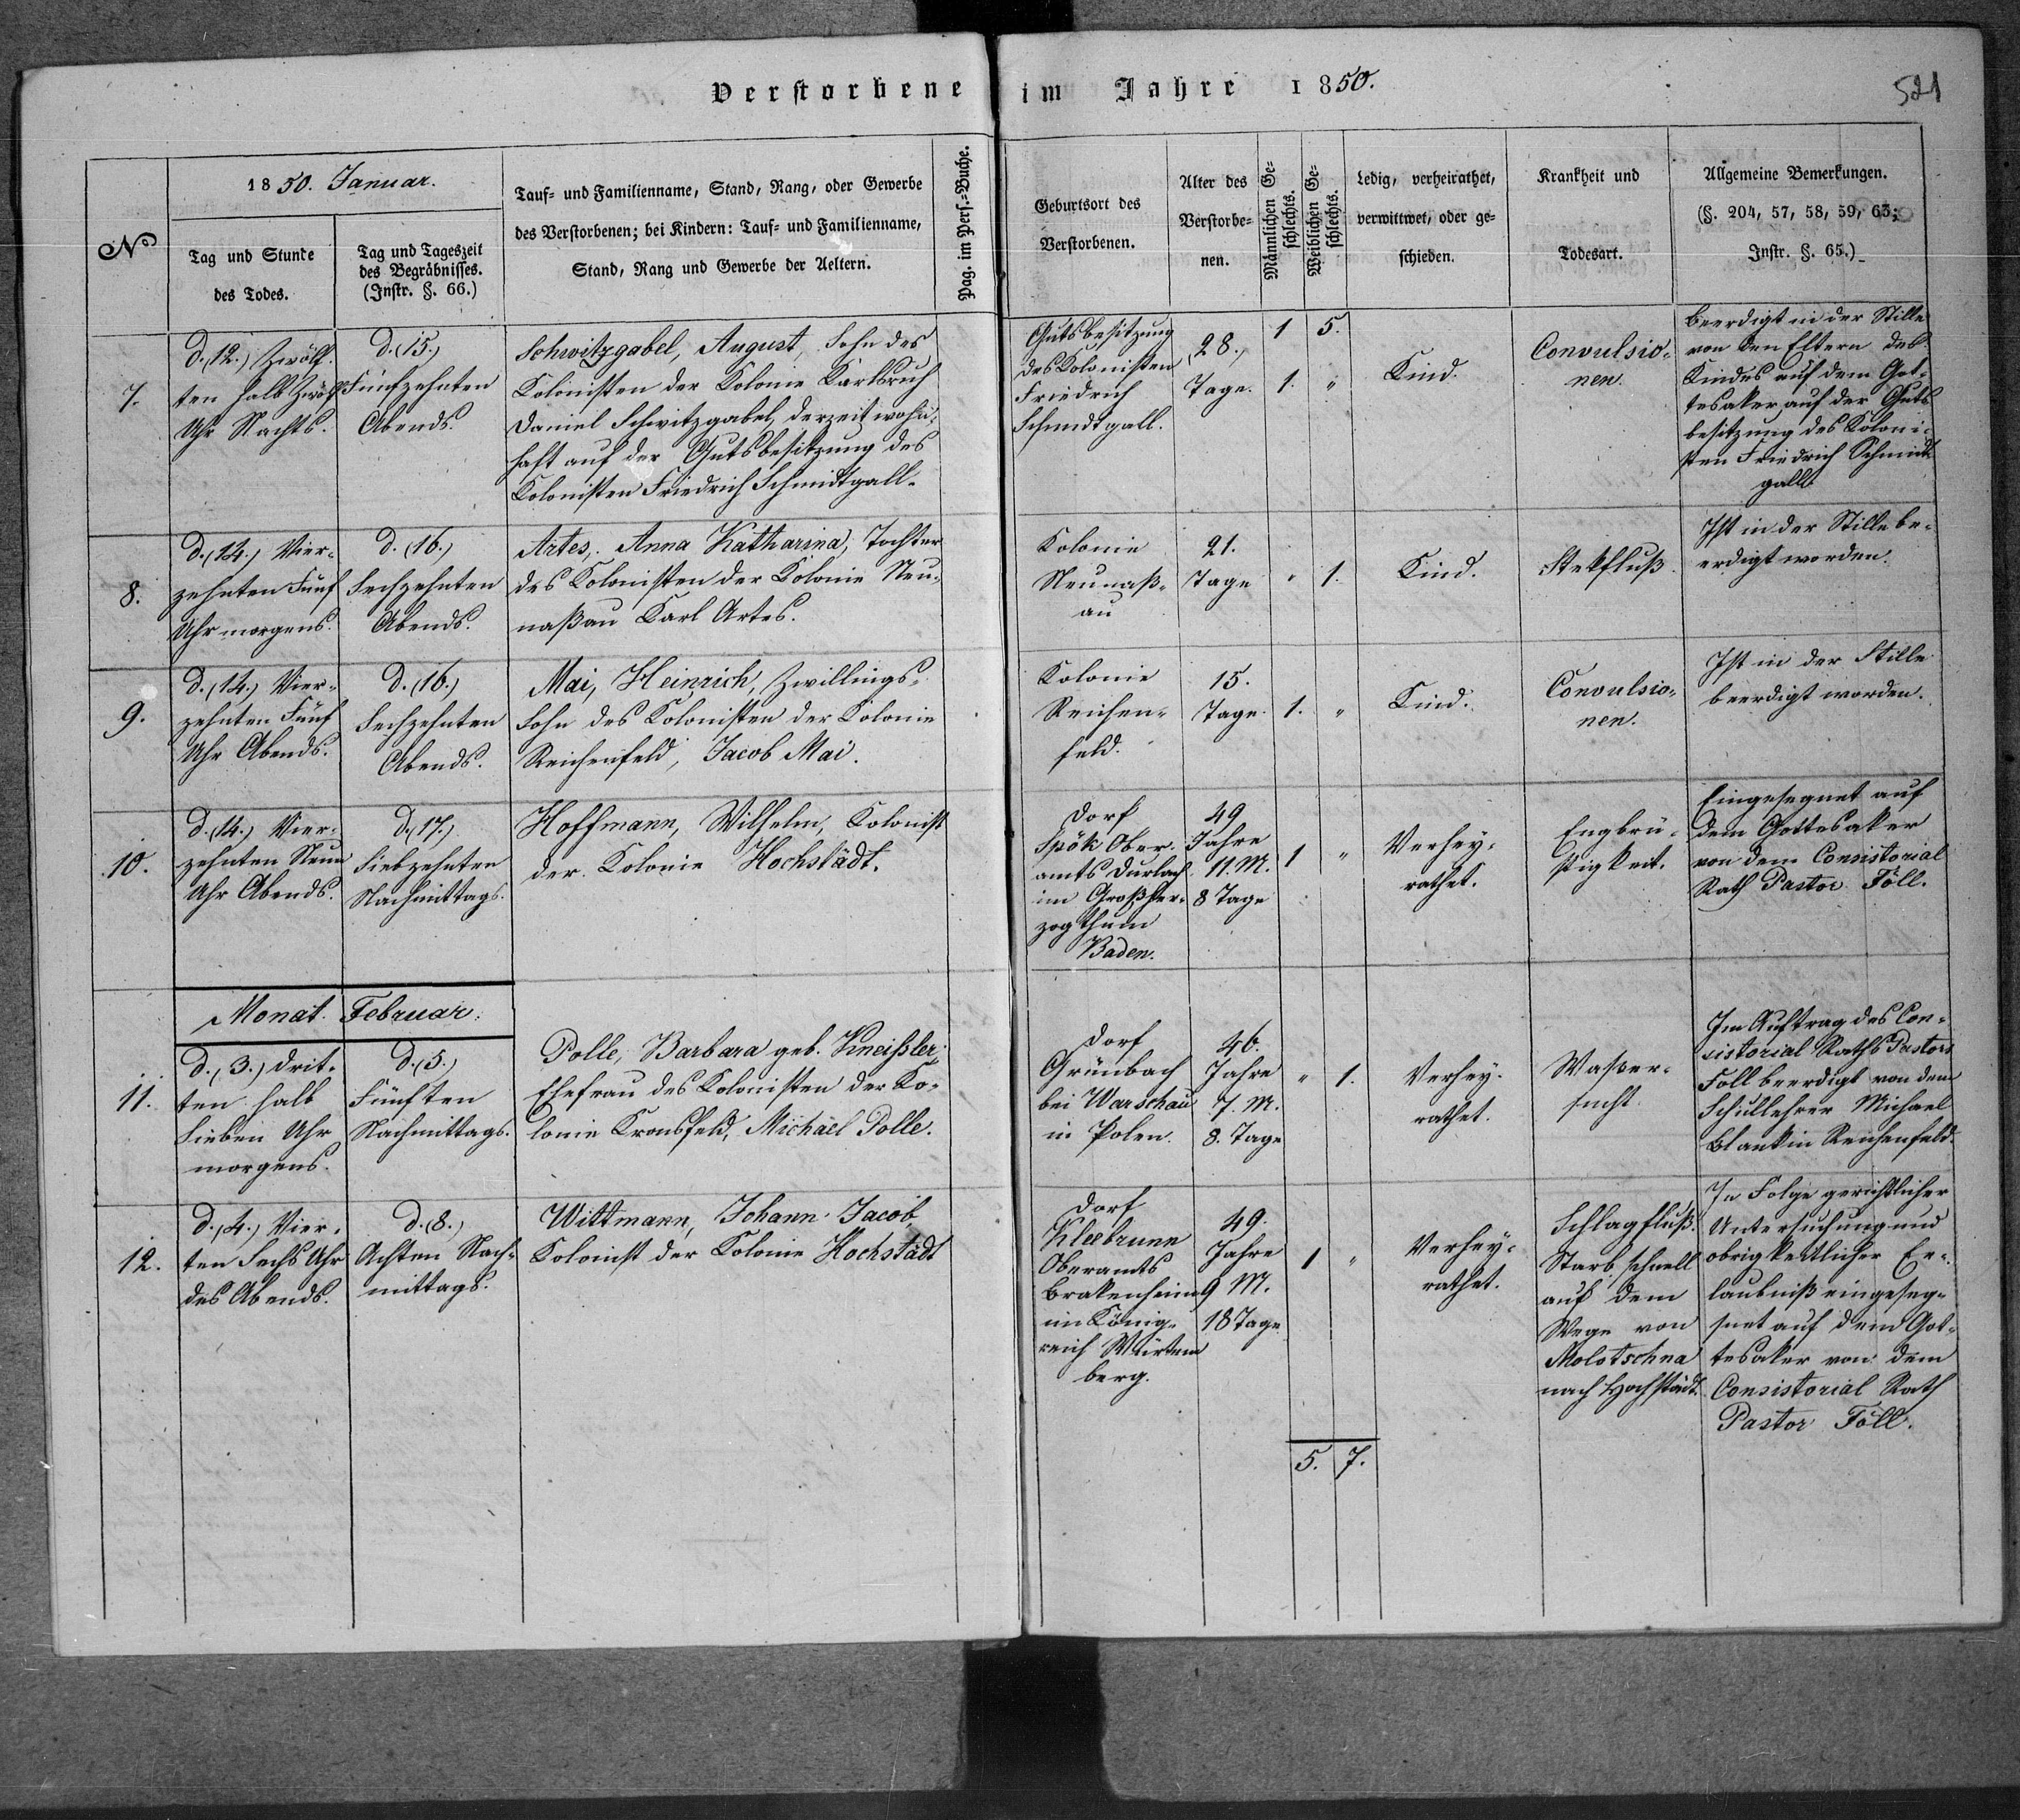 Verstorbene im Jahre 1850.
521
No
1850. Januar.
Tag und Stunde
des Todes.
Tag und Tageszeit
des Begräbnisses.
(Instr. §. 66.)
Tauf- und Familienname, Stand, Rang, oder Gewerbe
des Verstorbenen; bei Kindern: Tauf- und Familienname,
Stand, Rang und Gewerbe der Aeltern.
Pag. im Pers.-Buche.
Geburtsort des
Verstorbenen.
Alter des
Verstorbe-
nen.
Männlichen Ge-
schlechts.
Weiblichen Ge-
schlechts.
Ledig, verheirathet,
verwittwet, oder ge-
schieden.
Krankheit und
Todesart.
Allgemeine Bemerkungen.
(§. 204, 57, 58, 59, 63;
Instr. §. 65.)
7.
d. (12.) Zwölf-
ten halb Zwölf
Uhr Nachts.
d. (15.)
Fünfzehnten
Abends.
Schwitzgabel, August, Sohn des
Kolonisten der Kolonie Karlsruh
Daniel Schwitzgabel, derzeit wohn-
haft auf der Gutsbesitzung des
Kolonisten Friedrich Schmidtgall.
Gutsbesitzung
des Kolonisten
Friedrich
Schmidtgall.
28.
Tage.
1 5.
1. "
Kind.
Convulsio-
nen.
beerdigt in der Stille
von den Eltern des
Kindes auf dem Got-
tesaker auf der Guts
besitzung des Koloni-
sten Friedrich Schmidt
gall.
8.
d. (14.) Vier-
zehnten Fünf
Uhr morgens.
d. (16.)
Sechzehnten
Abends.
Artes, Anna Katharina, Tochter
des Kolonisten der Kolonie Neu-
naßau Karl Artes.
Kolonie
Neunaß-
au
21.
Tage
" 1.
Kind.
Stekfluß.
Ist in der Stille be-
erdigt worden.
9.
d. (14.) Vier-
zehnten Fünf
Uhr Abends.
d. (16.)
Sechzehnten
Abends.
Mai, Heinrich, Zwillings-
Sohn des Kolonisten der Kolonie
Reichenfeld, Jacob Mai.
Kolonie
Reichen-
feld.
15.
Tage.
1. "
Kind.
Convulsio-
nen.
Ist in der Stille
beerdigt worden.
10.
d. (14.) Vier-
zehnten Neun
Uhr Abends.
d. (17.)
Siebzehnten
Nachmittags.
Hoffmann, Wilhelm, Kolonist
der Kolonie Hochstädt.
Dorf
Spök Ober-
amts Durlach
im Großher-
zogthum
Baden.
49
Jahre
11. M.
8 Tage
1 "
Verhey-
rathet.
Engbrü-
stigkeit.
Eingesegnet auf
dem Gottesaker
von dem Consistorial
Rath Pastor Föll.
Monat Februar.
11.
d. (3.) Drit-
ten halb
Sieben Uhr
morgens.
d. (5.)
Fünften
Nachmittags.
Polle, Barbara geb. Kneißler,
Ehefrau des Kolonisten der Ko-
lonie Kronsfeld, Michael Polle.
Dorf
Grünbach
bei Warschau
in Polen.
46.
Jahre
7. M.
8. Tage
" 1.
Verhey-
rathet.
Waßer-
sucht.
Im Auftrag des Con-
sistorial Raths Pastors
Föll beerdigt von dem
Schullehrer Michael
Blank in Reichenfeld.
12.
d. (4.) Vier-
ten Sechs Uhr
des Abends.
d. (8.)
Achten Nach-
mittags.
Wittmann, Johann Jacob,
Kolonist der Kolonie Hochstädt
Dorf
Kleebrunn
Oberamts
Brakenheim
im König-
reich Würtem
berg.
49.
Jahre
9 M.
18 Tage
1 "
Verhey-
rathet.
Schlagfluß.
Starb schnell
auf dem
Wege von
Molotschna
nach Hochstädt.
In Folge gerichtlicher
Untersuchung und
obrigkeitlicher Er-
laubniß eingeseg-
net auf dem Got-
tesaker von dem
Consistorial Rath
Pastor Föll.
5. 7.